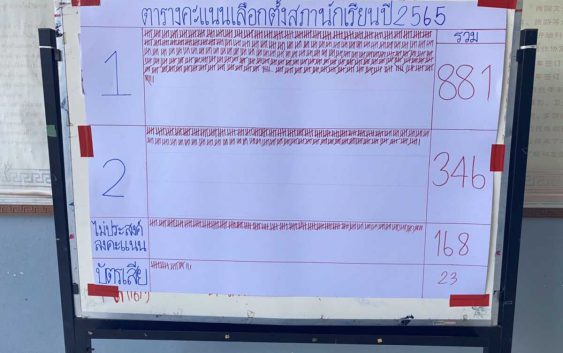 ตารางคะแนนเลือกตั้งสภานักเรียนปี 2565
รวม
1
881
2
346
ไม่ประสงค์
ลงคะแนน
168
บัตรเสีย
23